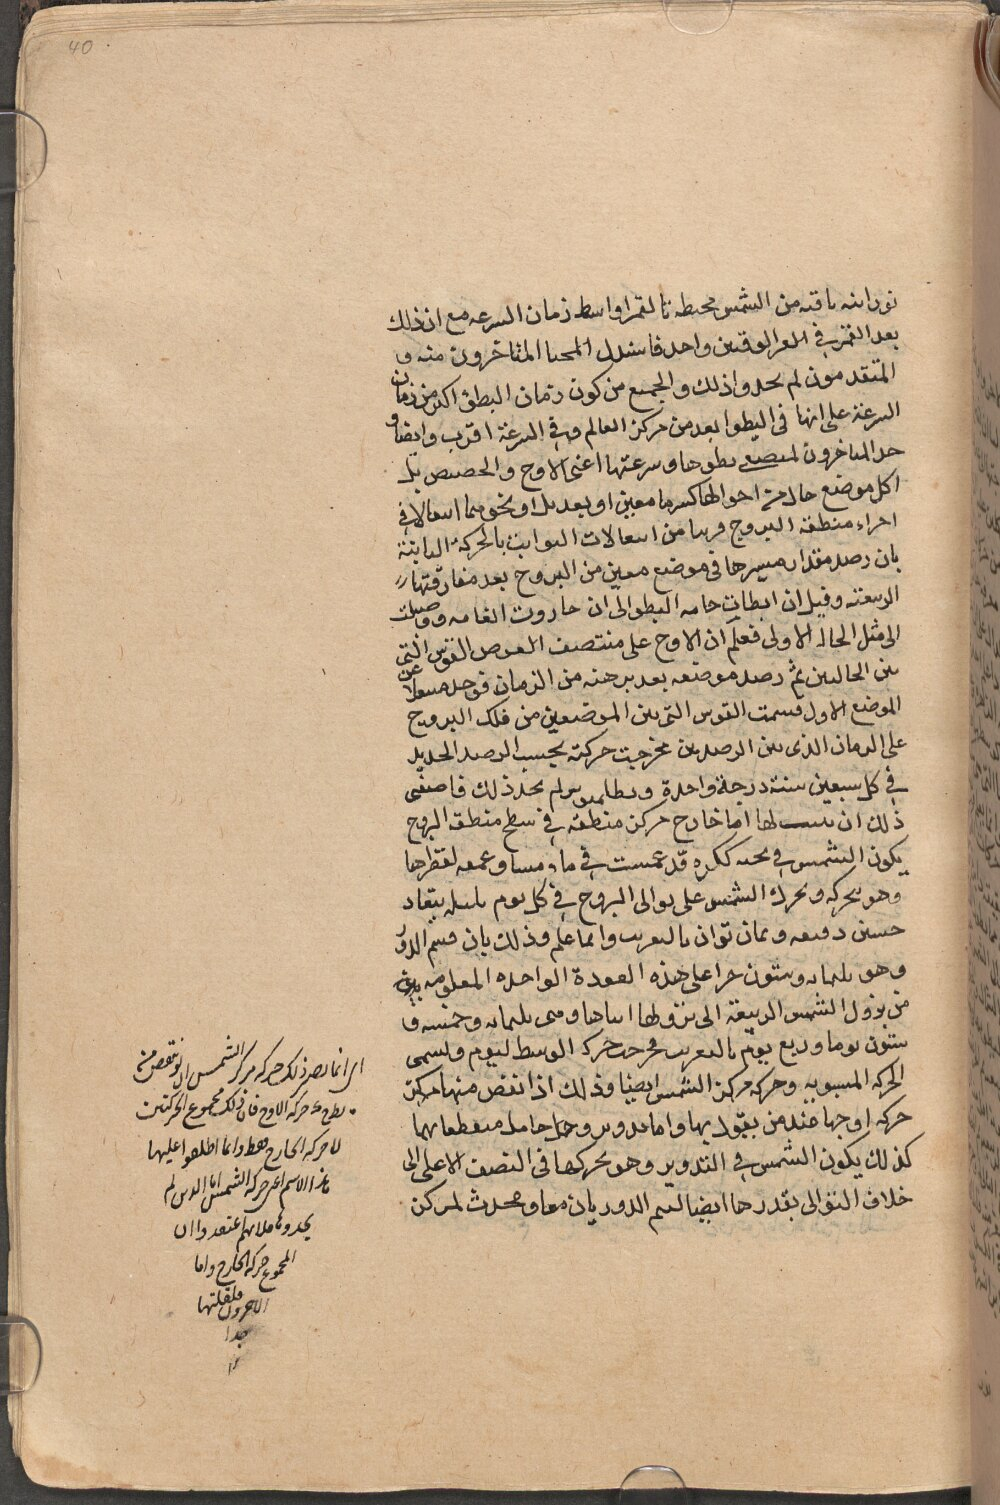 40
نورانية باقية من الشمس محيطة بالقمر اواسط زمان السرعه مع ان ذلك
بعد القمر في الوقتين واحد فاستدل المتاخرون منه و
المتقدمون لم يجدوا ذلك والجميع من كون زمان البطؤ اكثر من زمان
السرعة على انها في البطؤ ابعد من مركز العالم وفي السرعة اقرب وايضا و
جد المتاخرون لموضعي بطوها وسرعتها اعنى الاوج والحضيض بل
لكل موضع حاله من احوالها ككسر ما معين او بعديل او نحوهما انتقالا في
اجزاء منطقة البروج قريبا من انتقالات الثوابت بالحركة الثابتة
بان رصد مقدار مسيرها في موضع معين من البروج بعد مفارقتها
السرعة وقبل ان ابطات غاية البطؤ الى ان جاوزت الغاية ووصلت
الى مثل الحالة الاولى فعلم ان الاوج على منتصف القوس التى
بين الحالتين ثم رصد موضعه بعد برهة من الزمان فوجد منتقلا عن
الموضع الاول فقسمت القوس التى بين الموضعين من فلك البروج
على الزمان الذى بين الرصدين فخرجت حركته بحسب الرصد الجديد
في كل سبعين سنة درجة واحدة وبطلميوس لم يجد ذلك فاقتضى
ذلك ان لها اما خارج مركز منطقته في سطح منطقة البروج
يكون الشمس في ثخنه ككرة قد غمست في ماء مساو عمقه لقطرها
وهو يتحركه ويحرك الشمس على توالى البروج في كل يوم بليلته
خمسين دقيقة وثمان ثوان بالتقريب وانما علم وذلك بان قسم الدور
وهو ثلثمائة وستون جزا على هذه العودة الواحدة المعلومة
من نزول الشمس الدقيقة الى نزولها اياها وهى ثلثمائة وخمسة و
ستون يوما وربع يوم بالتقريب فخرجت حركة الوسط ليوم ويسمى
الحركة المنسوبة وحركة مركز الشمس ايضا وذلك اذا نقص منها
حركة اوجها عند من يقول بها واما تدوير وحامل منقطعا بهما
كذلك يكون الشمس في التدوير وهو يحركها في النصف الاعلى الى
خلاف التوالى بقدرها ايضا ليتم الدوريان معا ويحدث لمركز
اى انما يصير ذلك حركة مركز الشمس ان نقص منه
حركة الاوج فان ذلك مجموع الحركتين
لا حركة الخارج فقط وانما اطلقوا عليها
هذا الاسم اعنى حركة الشمس اما الذين لم
يجدوها فلانهم اعتقدوا ان
المجموع حركة الخارج واما
الاخرون فلقلتها
جدا